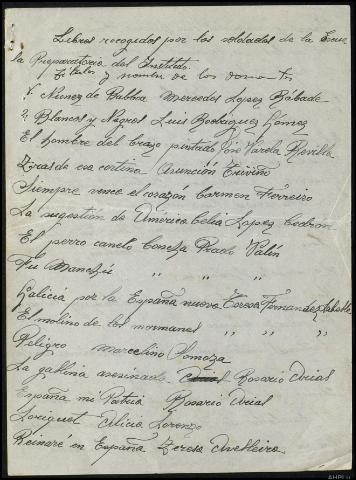 Libros recogidos por los soldados de la Escue
la Preparatoria del Instituto.
Titulos y nombre de los donantes
Nuñez de Balboa Mercedes Lopez Rábade
Blancos y Negros Luis Rodríguez Gómez
El hombre del brazo pintado José Varela Revilla
Tirad de esa cortina Asunción Triviño
Siempre vence el corazón Carmen Ferreiro
La sugestión de América Celia Lopez Cedrón
El perro canelo Concha Prado Valín
Fu Manchú " " "
Galicia por la España nueva Teresa Fernandez
El molino de los mormones " " "
Peligro Marcelino Somoza
La gallina asesinada Rosario Arias
España mi Patria Rosario Arias
Loriguet Alicia Lorenzo
Reinaré en España Teresa Avelleira
AHPLu